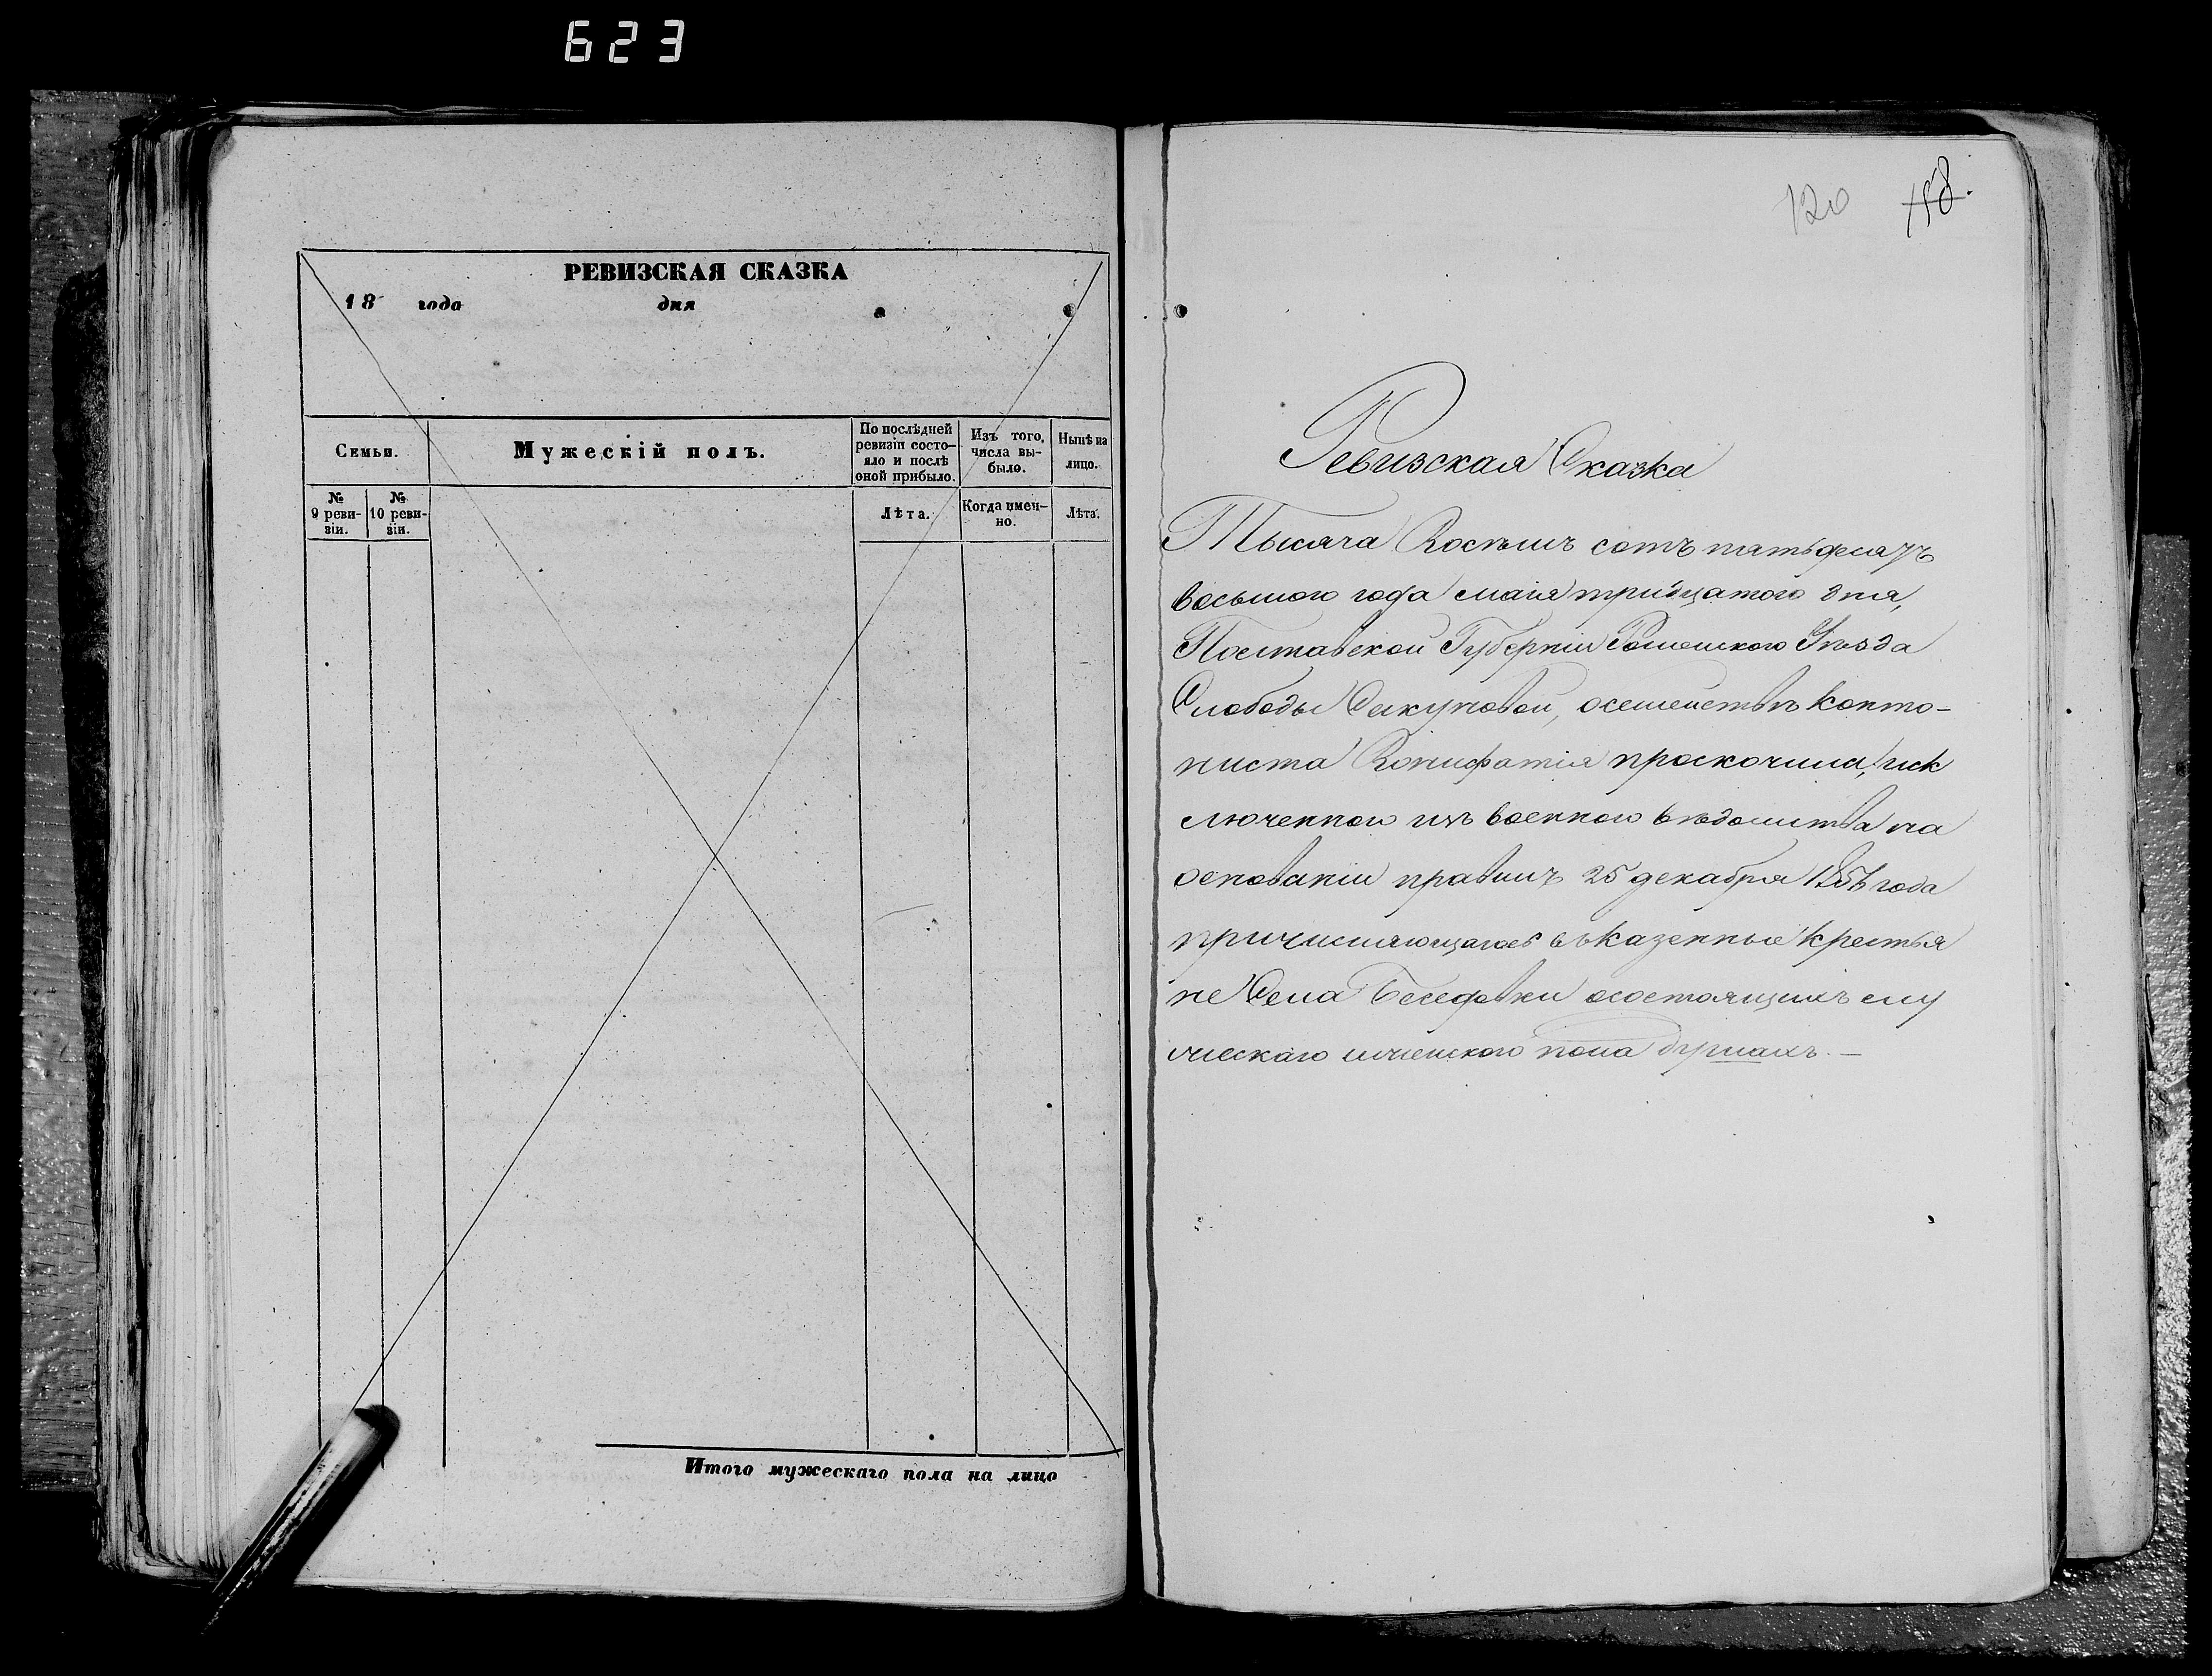 623
РЕВИЗСКАЯ СКАЗКА
18 года дня
Семьи.
Мужескій полъ.
По послѣдней ревизіи состо-
яло и послѣ оной прибыло.
Изъ того, числа вы-
было.
Нынѣ на лицо.
№ 9 реви-
зіи.
№ 10 реви-
зіи.
Лѣта.
Когда имен-
но.
Лѣта.
Итого мужескаго пола на лицо
120 118.
Ревизская Сказка
Тысяча Восѣмь сотъ пятьдесятъ
восьмого года маія тридцатого дня,
Полтавской Губерніи Роменского Уѣзда
Слободы Секуновой, осемействѣ конто-
ниста Вонифатія проскочила, иск
люченного изъ военного вѣдомства на
основаніи правилъ 25 декабря 1856 года
причисляющагось въ казенные крестья
не Села Беседовки осостоящихъ ему
ческаго иженского пола душахъ. —